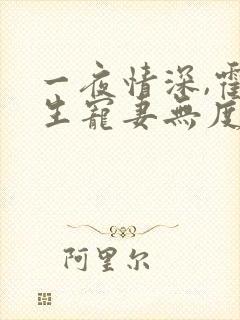 一夜情深,霍
生寵妻無度
阿里尔